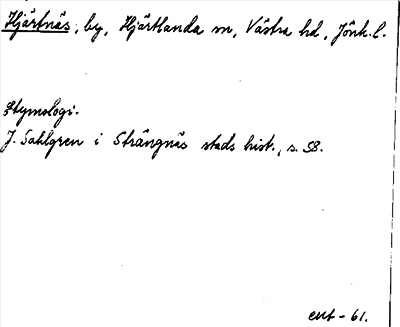 Hjärtnäs, by, Hjärtlanda sn, Västra hd, Jönk. l.
Etymologi.
J. Sahlgren i Strängnäs stads hist., s. 58.